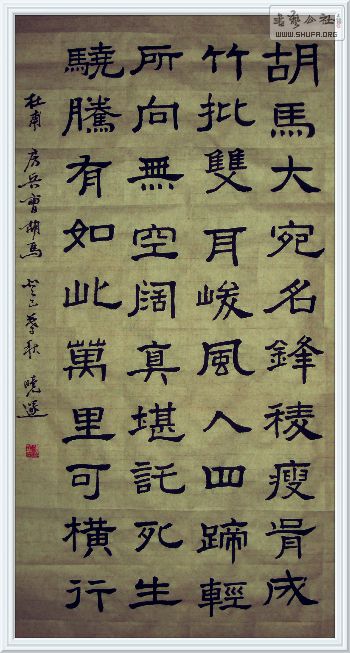 胡馬大宛名鋒稜瘦骨成
竹批雙耳峻風入四蹄輕
所向無空闊真堪託死生
驍騰有如此萬里可橫行
杜甫 房兵曹胡馬 癸巳孟秋 曉遜
书艺公社
WWW.SHUFA.ORG